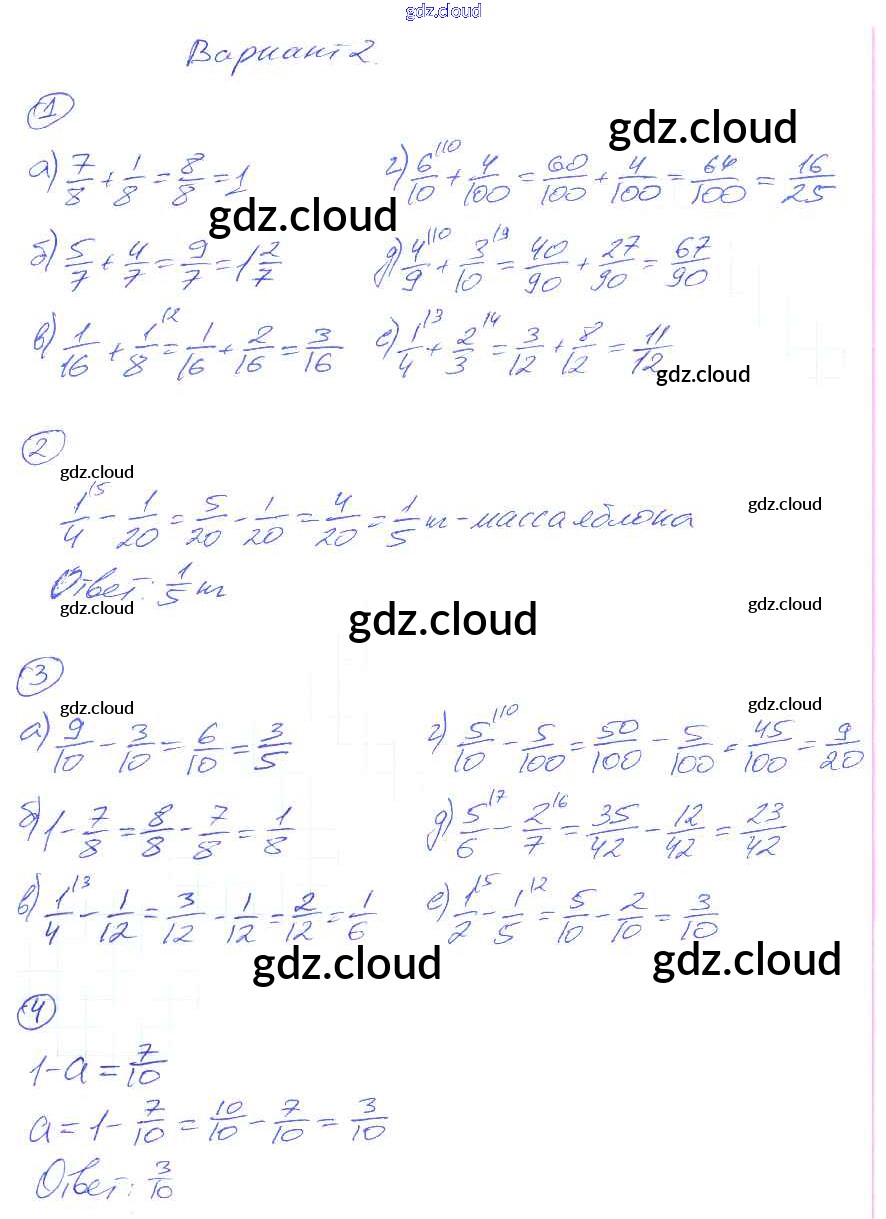 gdz.cloud
Вариант 2.
1
gdz.cloud
а) 7/8 + 1/8 = 8/8 = 1
г) 6/10 |10 + 4/100 = 60/100 + 4/100 = 64/100 = 16/25
gdz.cloud
б) 5/7 + 4/7 = 9/7 = 1 2/7
д) 4/9 |10 + 3/10 |9 = 40/90 + 27/90 = 67/90
в) 1/16 + 1/8 |2 = 1/16 + 2/16 = 3/16
е) 1/4 |3 + 2/3 |4 = 3/12 + 8/12 = 11/12
gdz.cloud
2
gdz.cloud
1/4 |5 - 1/20 = 5/20 - 1/20 = 4/20 = 1/5 кг - масса яблока
gdz.cloud
Ответ: 1/5 кг
gdz.cloud
gdz.cloud
gdz.cloud
3
gdz.cloud
gdz.cloud
а) 9/10 - 3/10 = 6/10 = 3/5
г) 5/10 |10 - 5/100 = 50/100 - 5/100 = 45/100 = 9/20
б) 1 - 7/8 = 8/8 - 7/8 = 1/8
д) 5/6 |7 - 2/7 |6 = 35/42 - 12/42 = 23/42
в) 1/4 |3 - 1/12 = 3/12 - 1/12 = 2/12 = 1/6
е) 1/2 |5 - 1/5 |2 = 5/10 - 2/10 = 3/10
gdz.cloud
gdz.cloud
4
1 - а = 7/10
а = 1 - 7/10 = 10/10 - 7/10 = 3/10
Ответ: 3/10